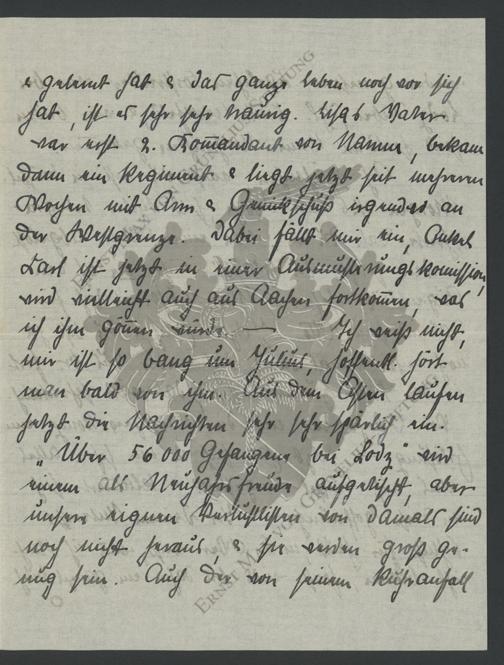 & gelernt hat & das ganze Leben noch vor sich
hat, ist es sehr sehr traurig. Lisas Vater
war erst 2. Komandant von Namur, bekam
dann ein Regiment & liegt jetzt seit mehreren
Wochen mit Arm & Genickschuß irgendwo an
der Westgrenze. Dabei fällt mir ein, Onkel
Karl ist jetzt in einer Ausmusterungskomission,
wird vielleicht auch aus Aachen fortkomen, was
ich ihm gönen würde. — Ich weiß nicht,
mir ist so bang um Julius, hoffentl. hört
man bald von ihm. Aus dem Osten laufen
jetzt die Nachrichten sehr sehr spärlich ein.
„Über 56 000 Gefangene bei Lodz" wird
einem als Neujahrsfreude aufgetischt, aber
unsere eignen Verlustlisten von damals sind
noch nicht heraus, & sie werden groß ge-
nug sein. Auch der von seinem Ruhranfall